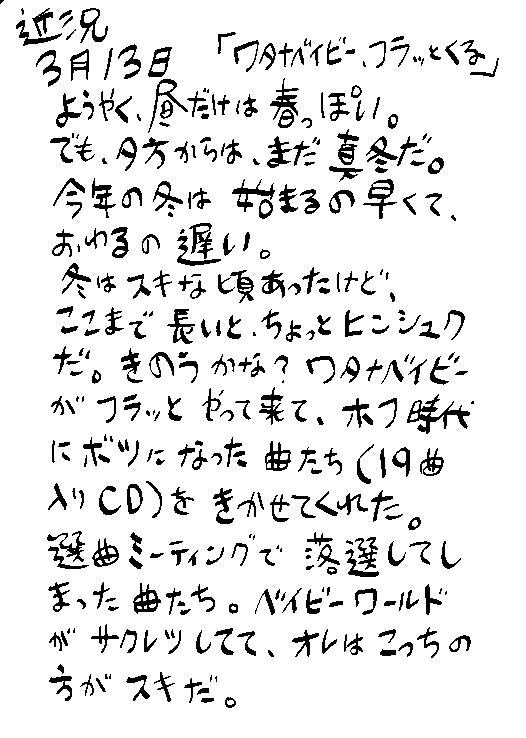 近況
3月13日 「ワタナベイビー、フラッとくる」
ようやく、昼だけは春っぽい。
でも、夕方からは、まだ真冬だ。
今年の冬は始まるの早くて、
おわるの遅い。
冬はスキな頃あったけど、
ここまで長いと、ちょっとヒンシュク
だ。きのうかな？ワタナベイビー
がフラッとやって来て、ホフ時代
にボツになった曲たち(19曲
入りCD)をきかせてくれた。
選曲ミーティングで落選してし
まった曲たち。ベイビーワールド
がサクレツしてて、オレはこっちの
方がスキだ。